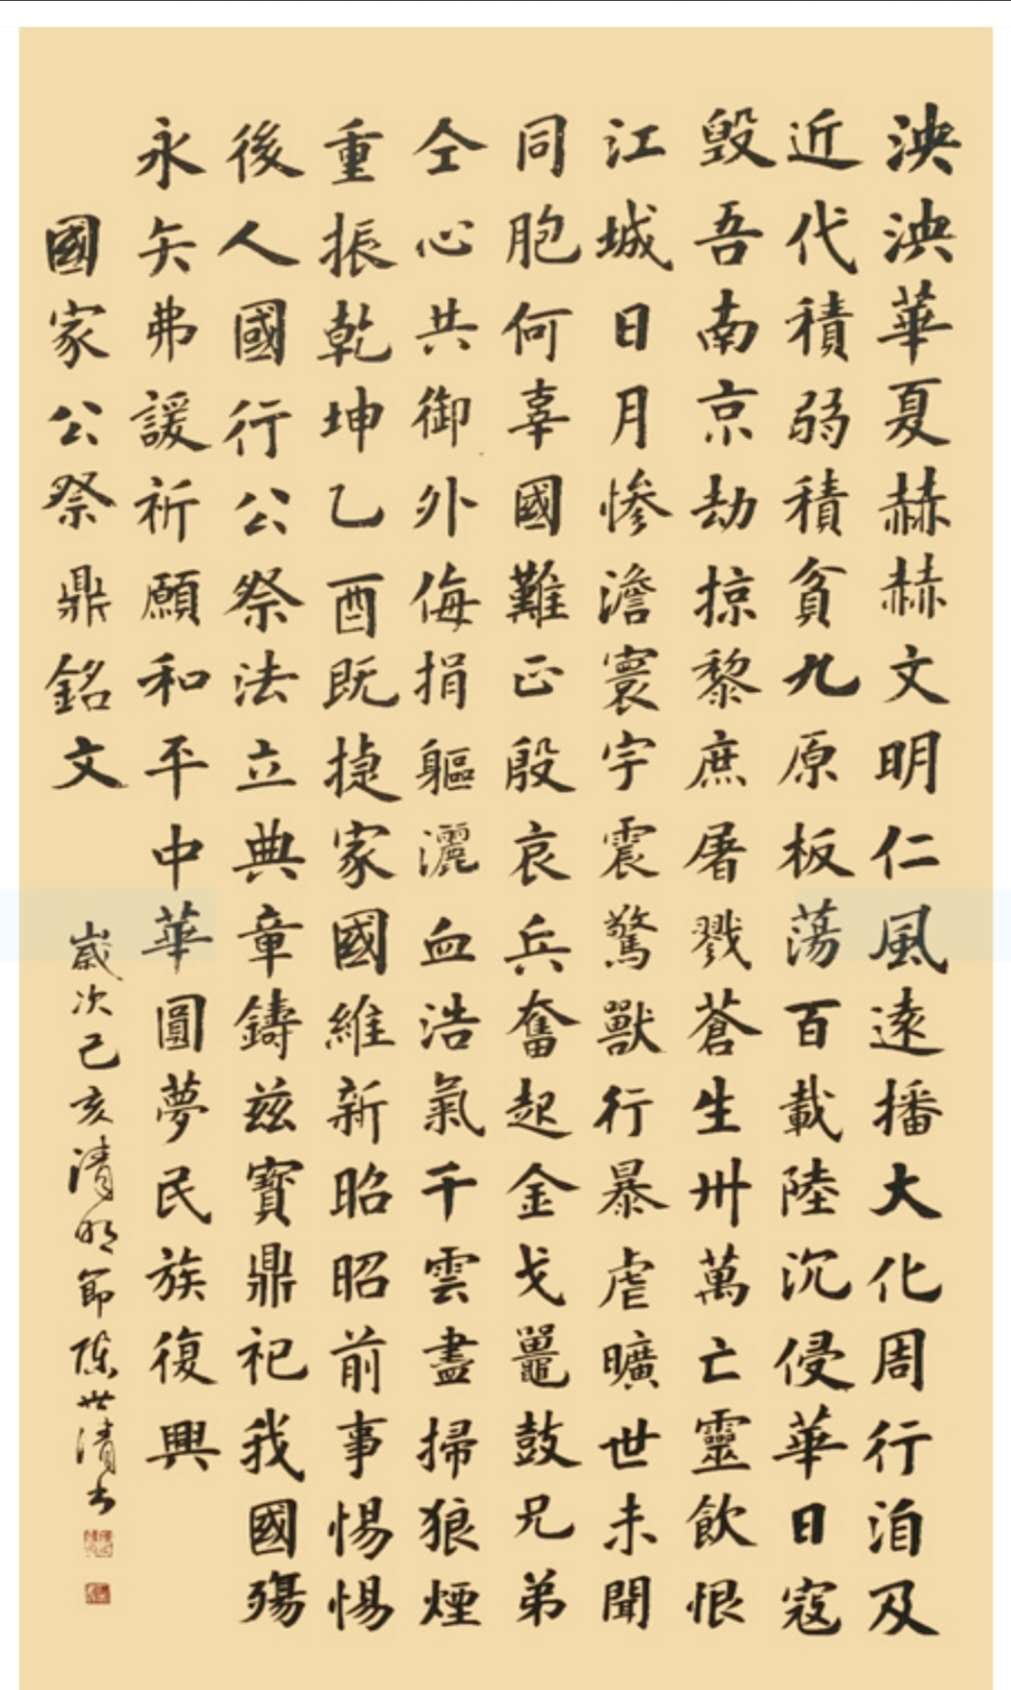 泱泱華夏赫赫文明仁風遠播大化周行洎及
近代積弱積貧九原板蕩百載陸沉侵華日寇
毀吾南京劫掠黎庶屠戮蒼生卅萬亡靈飲恨
江城日月慘澹寰宇震驚獸行暴虐曠世未聞
同胞何辜國難正殷哀兵奮起金戈鼉鼓兄弟
仝心共御外侮捐軀灑血浩氣千雲盡掃狼煙
重振乾坤乙酉既捷家國維新昭昭前事惕惕
後人國行公祭法立典章鑄茲寶鼎祀我國殤
永矢弗諼祈願和平中華圓夢民族復興
國家公祭鼎銘文
歲次己亥清明節陳世清書